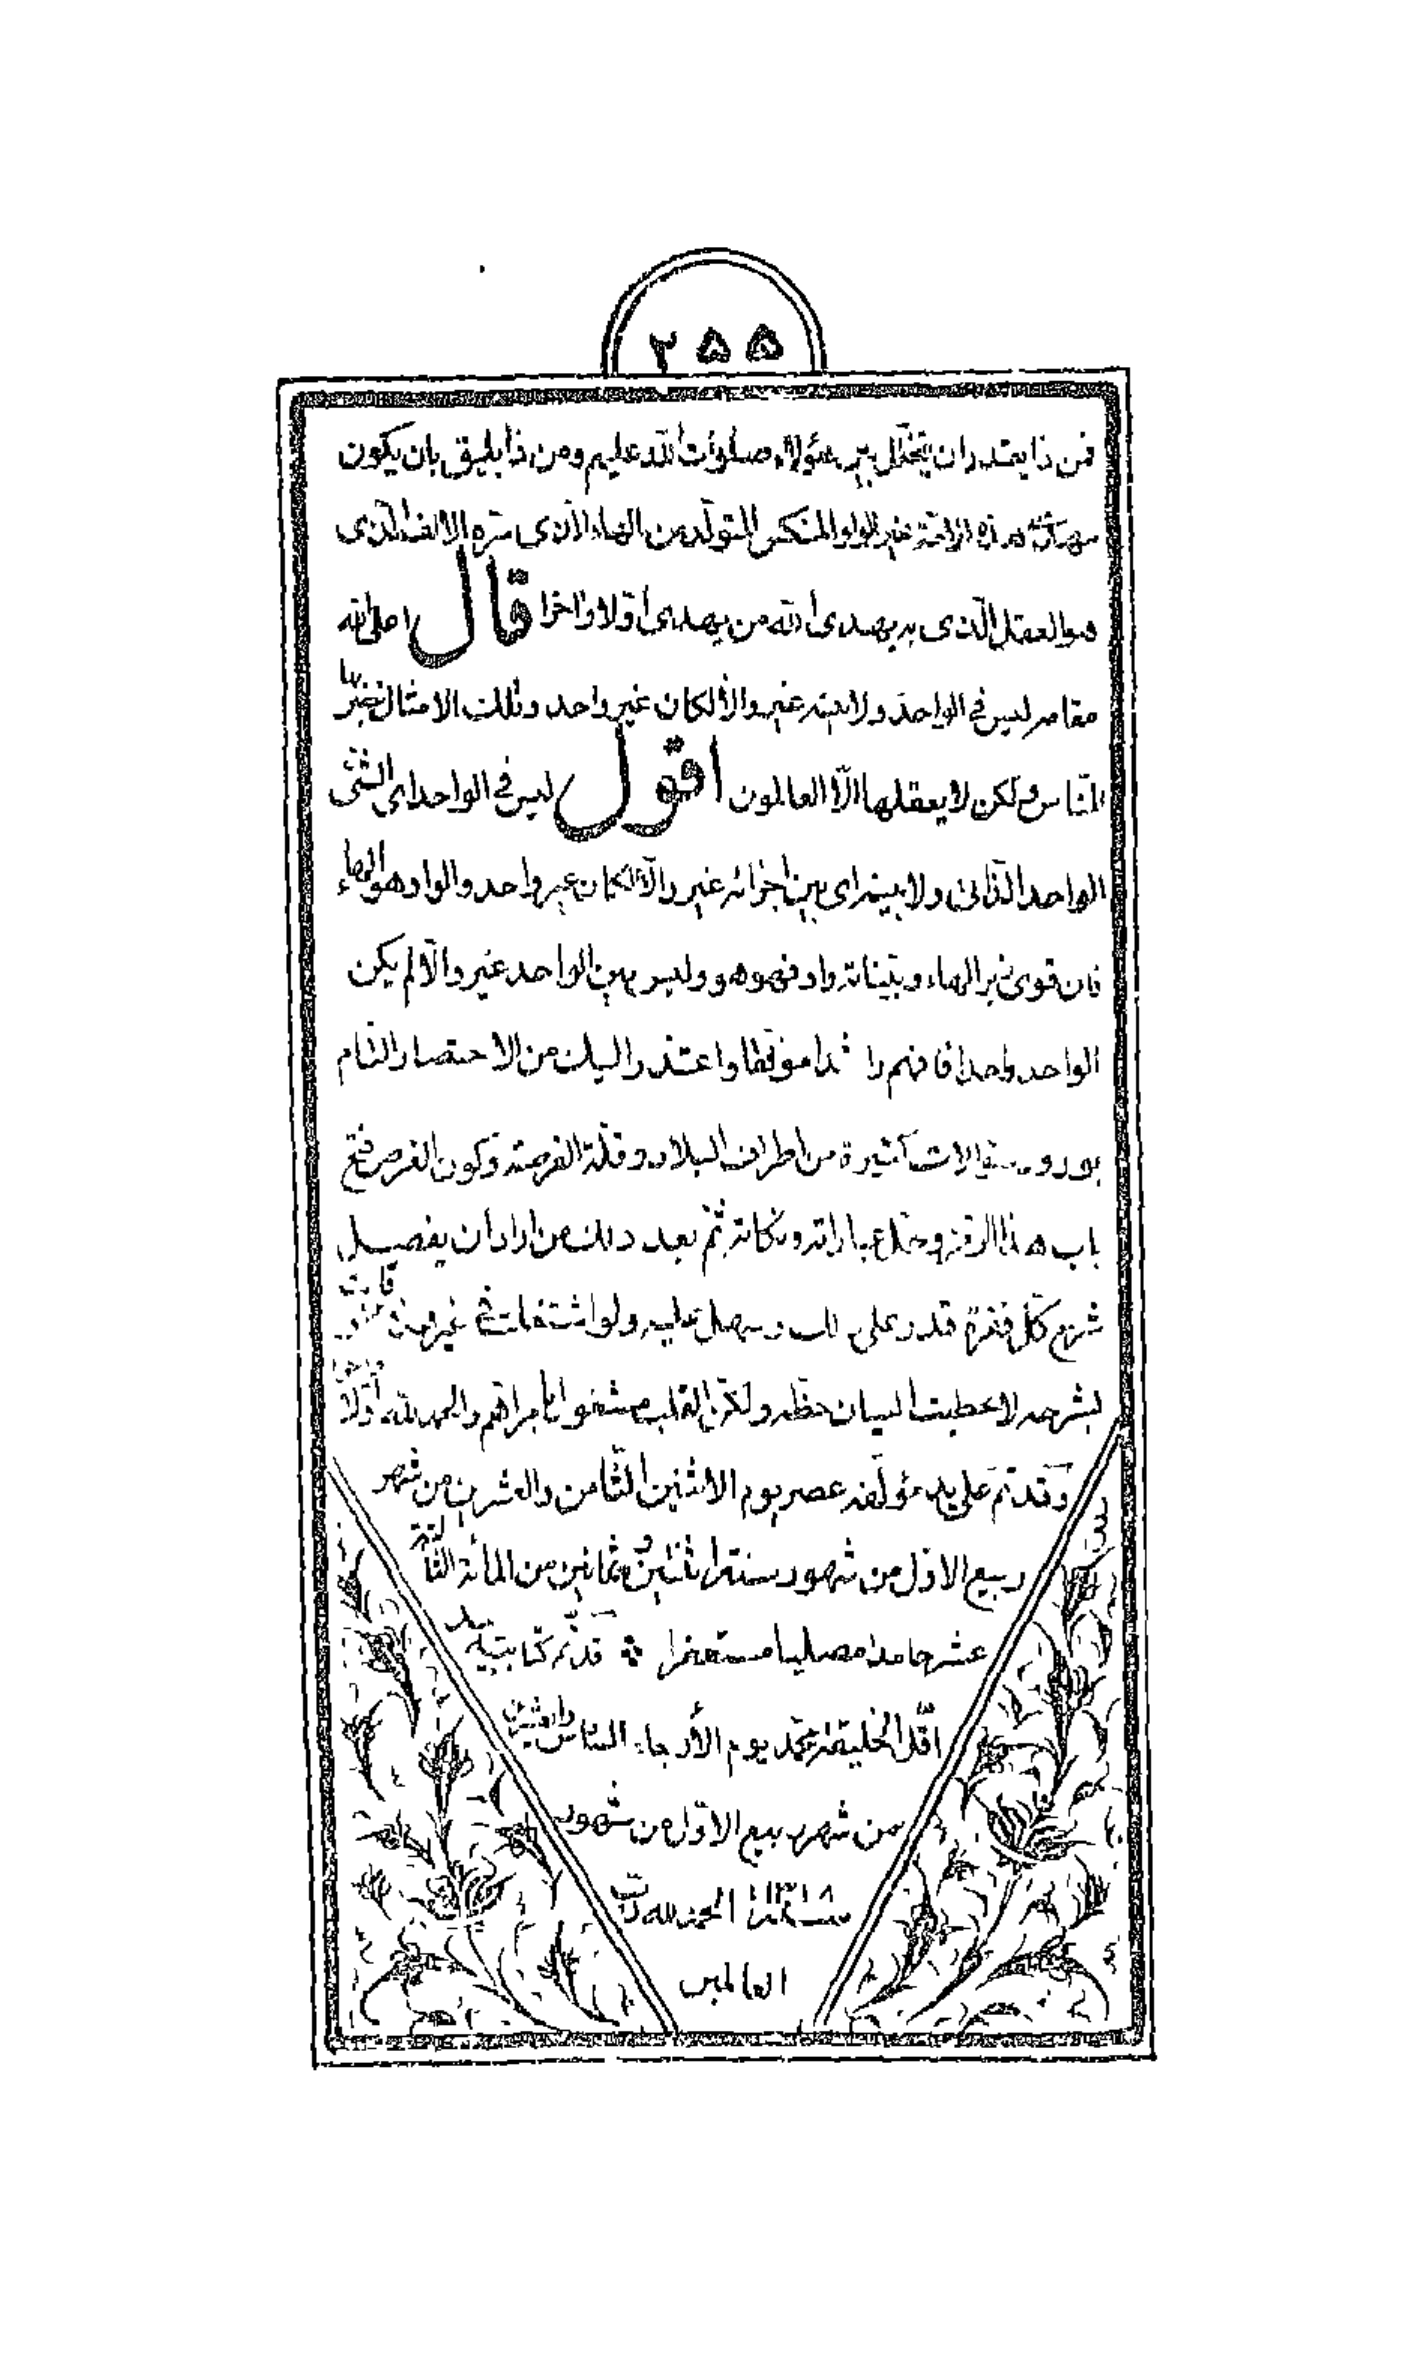 ۲۵۵
فمن ذا يقدر ان يتخلل بين هؤلاء صلوات الله عليهم ومن ذا يليق بان يكون
هذه غير الواو المنكس المتولد من الهاء الذى سره الالف الذى
هو العقل الذى به يهدى الله من يهدى اولا واخرا قال اعلى الله
مقامه ليس فى الواحد ولا بينه غيره والا لكان غير واحد وتلك الامثال نضربها
للناس ولكن لا يعقلها الا العالمون اقول ليس فى الواحد اى الشئ
الواحد الذاتى ولا بينه اى بين اجزائه غيره والا لكان غير واحد والواو هو الهاء
فان قوى زبر الهاء وبيناته واو فهو هو وليس بين الواحد غيره والا لم يكن
الواحد واحدا فافهم راشدا موفقا واعتذر اليك من الاختصار التام
بورود سؤالات كثيرة من اطراف البلاد وقلة الفرصة وكون الغرض فتح
باب هذا الرمز وحل عباراته ونكاته ثم بعد ذلك من اراد ان يفصل
شرح كل فقرة قدر على ذلك وسهل عليه ولو اشتغلت فى غير
بشرحه لاعطيت البيان حظه ولكن القلب مشغول والحمد لله اولا
وقد تم على يد مؤلفه عصر يوم الاثنين الثامن والعشرين من شهر
ربيع الاول من شهور سنة اثنتين وثمانين من المائة الثالثة
عشر حامدا مصليا مستغفرا قد تم كتابته بيد
اقل الخليقة محمد يوم الأربعاء السادس والعشرين
من شهر ربيع الاول من شهور
الحمد لله رب
العالمين